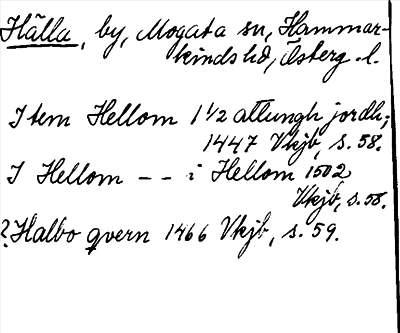 Hälla, by, Mogata sn, Hammar-
kinds hd, Österg. l.
Item Hellom 1 1/2 attungh jordh;
1447 Vkjb, s. 58.
I Hellom -- i Hellom 1502
Vkjb, s. 58.
? Halbo qvern 1466 Vkjb, s. 59.